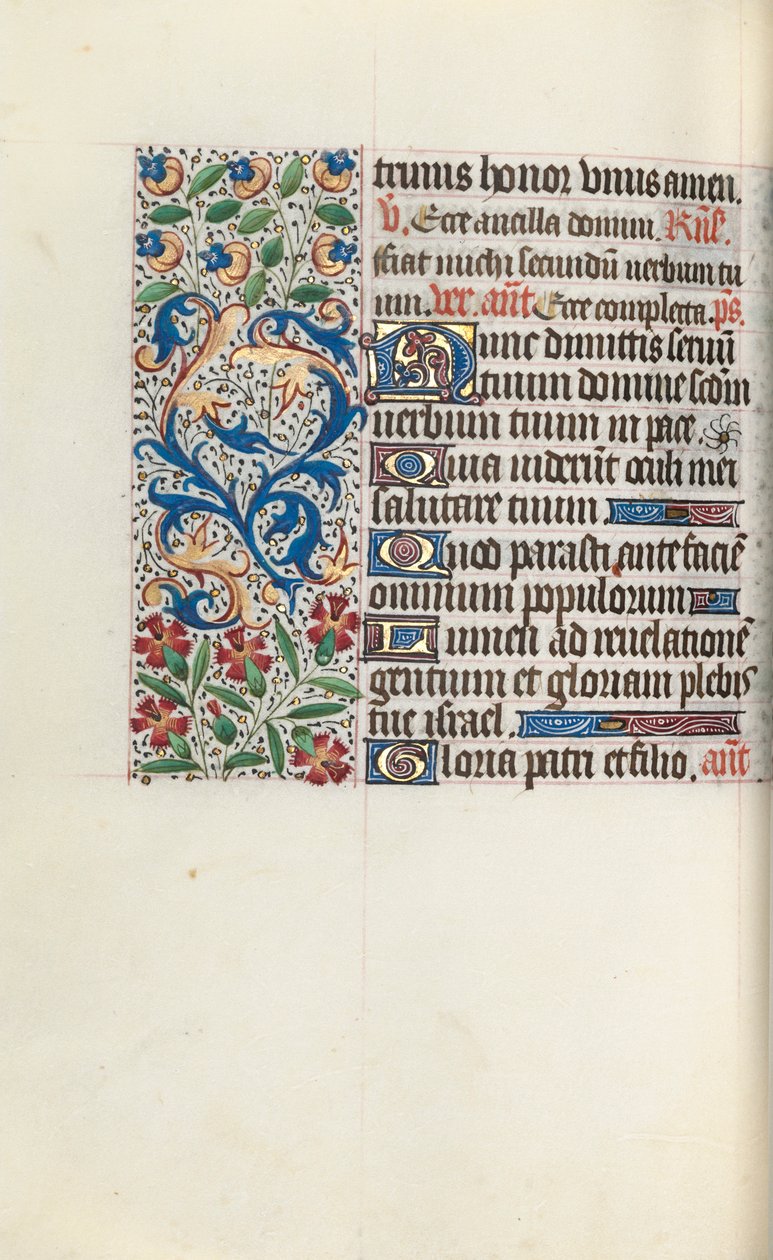 trinus honor vnus amen.
V̄. Ecce ancilla domini. Rñẽ.
ffiat michi secundũ uerbum tu
um. Ver. añt Ecce completa. p̃s.
Nunc dimittis seruũ
tuum domine scd̃m
uerbum tuum in pace.
Quia uiderũt oculi mei
salutare tuum
Quod parasti ante faciẽ
omnium populorum
Lumen ad reuelationẽ
gentium et gloriam plebis
tue israel.
Gloria patri et filio. añt